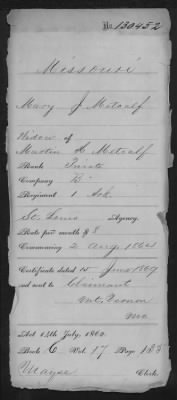 No. 130452
Missouri
Mary J Metcalf
Widow of
Martin A. Metcalf
Rank Private
Company B
Regiment 1 Ark
St. Louis Agency.
Rate per month $ 8
Commencing 2 Aug. 1864
Certificate dated 15 June 1869
and sent to Claimant
Mt. Vernon
Mo
Act 14th July, 1862.
Book 6 Vol. 17 Page 183
Mayse Clerk.